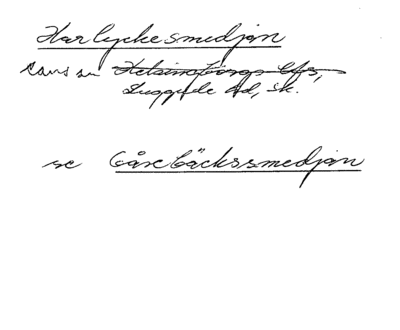 Harlyckesmedjan
Helsingborgs lfs,
Luggude hd, Sk.
se Gåsebäckssmedjan